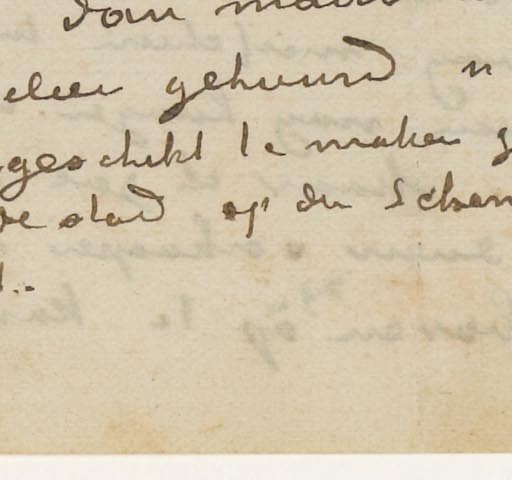 dan maar
elier gehuurd n
geschikt te maken g
de stad op den Schen